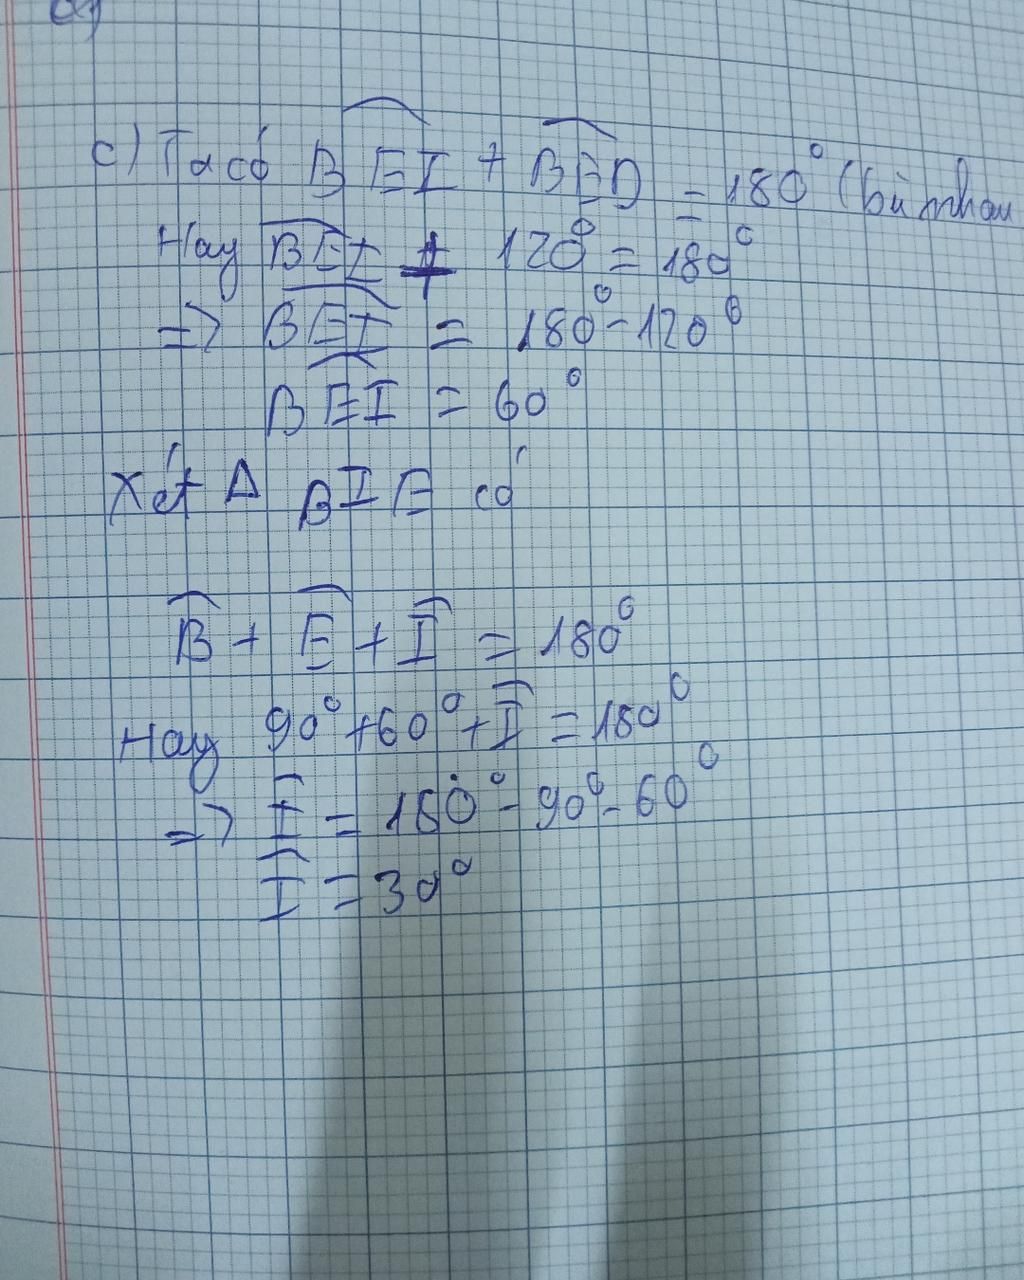 c) Ta có BEI + BED = 180° (bù nhau
Hay BEI + 120° = 180°
=> BEI = 180° - 120°
BEI = 60°
Xét Δ BIE có
B + E + I = 180°
Hay 90° + 60° + I = 180°
=> I = 180° - 90° - 60°
I = 30°